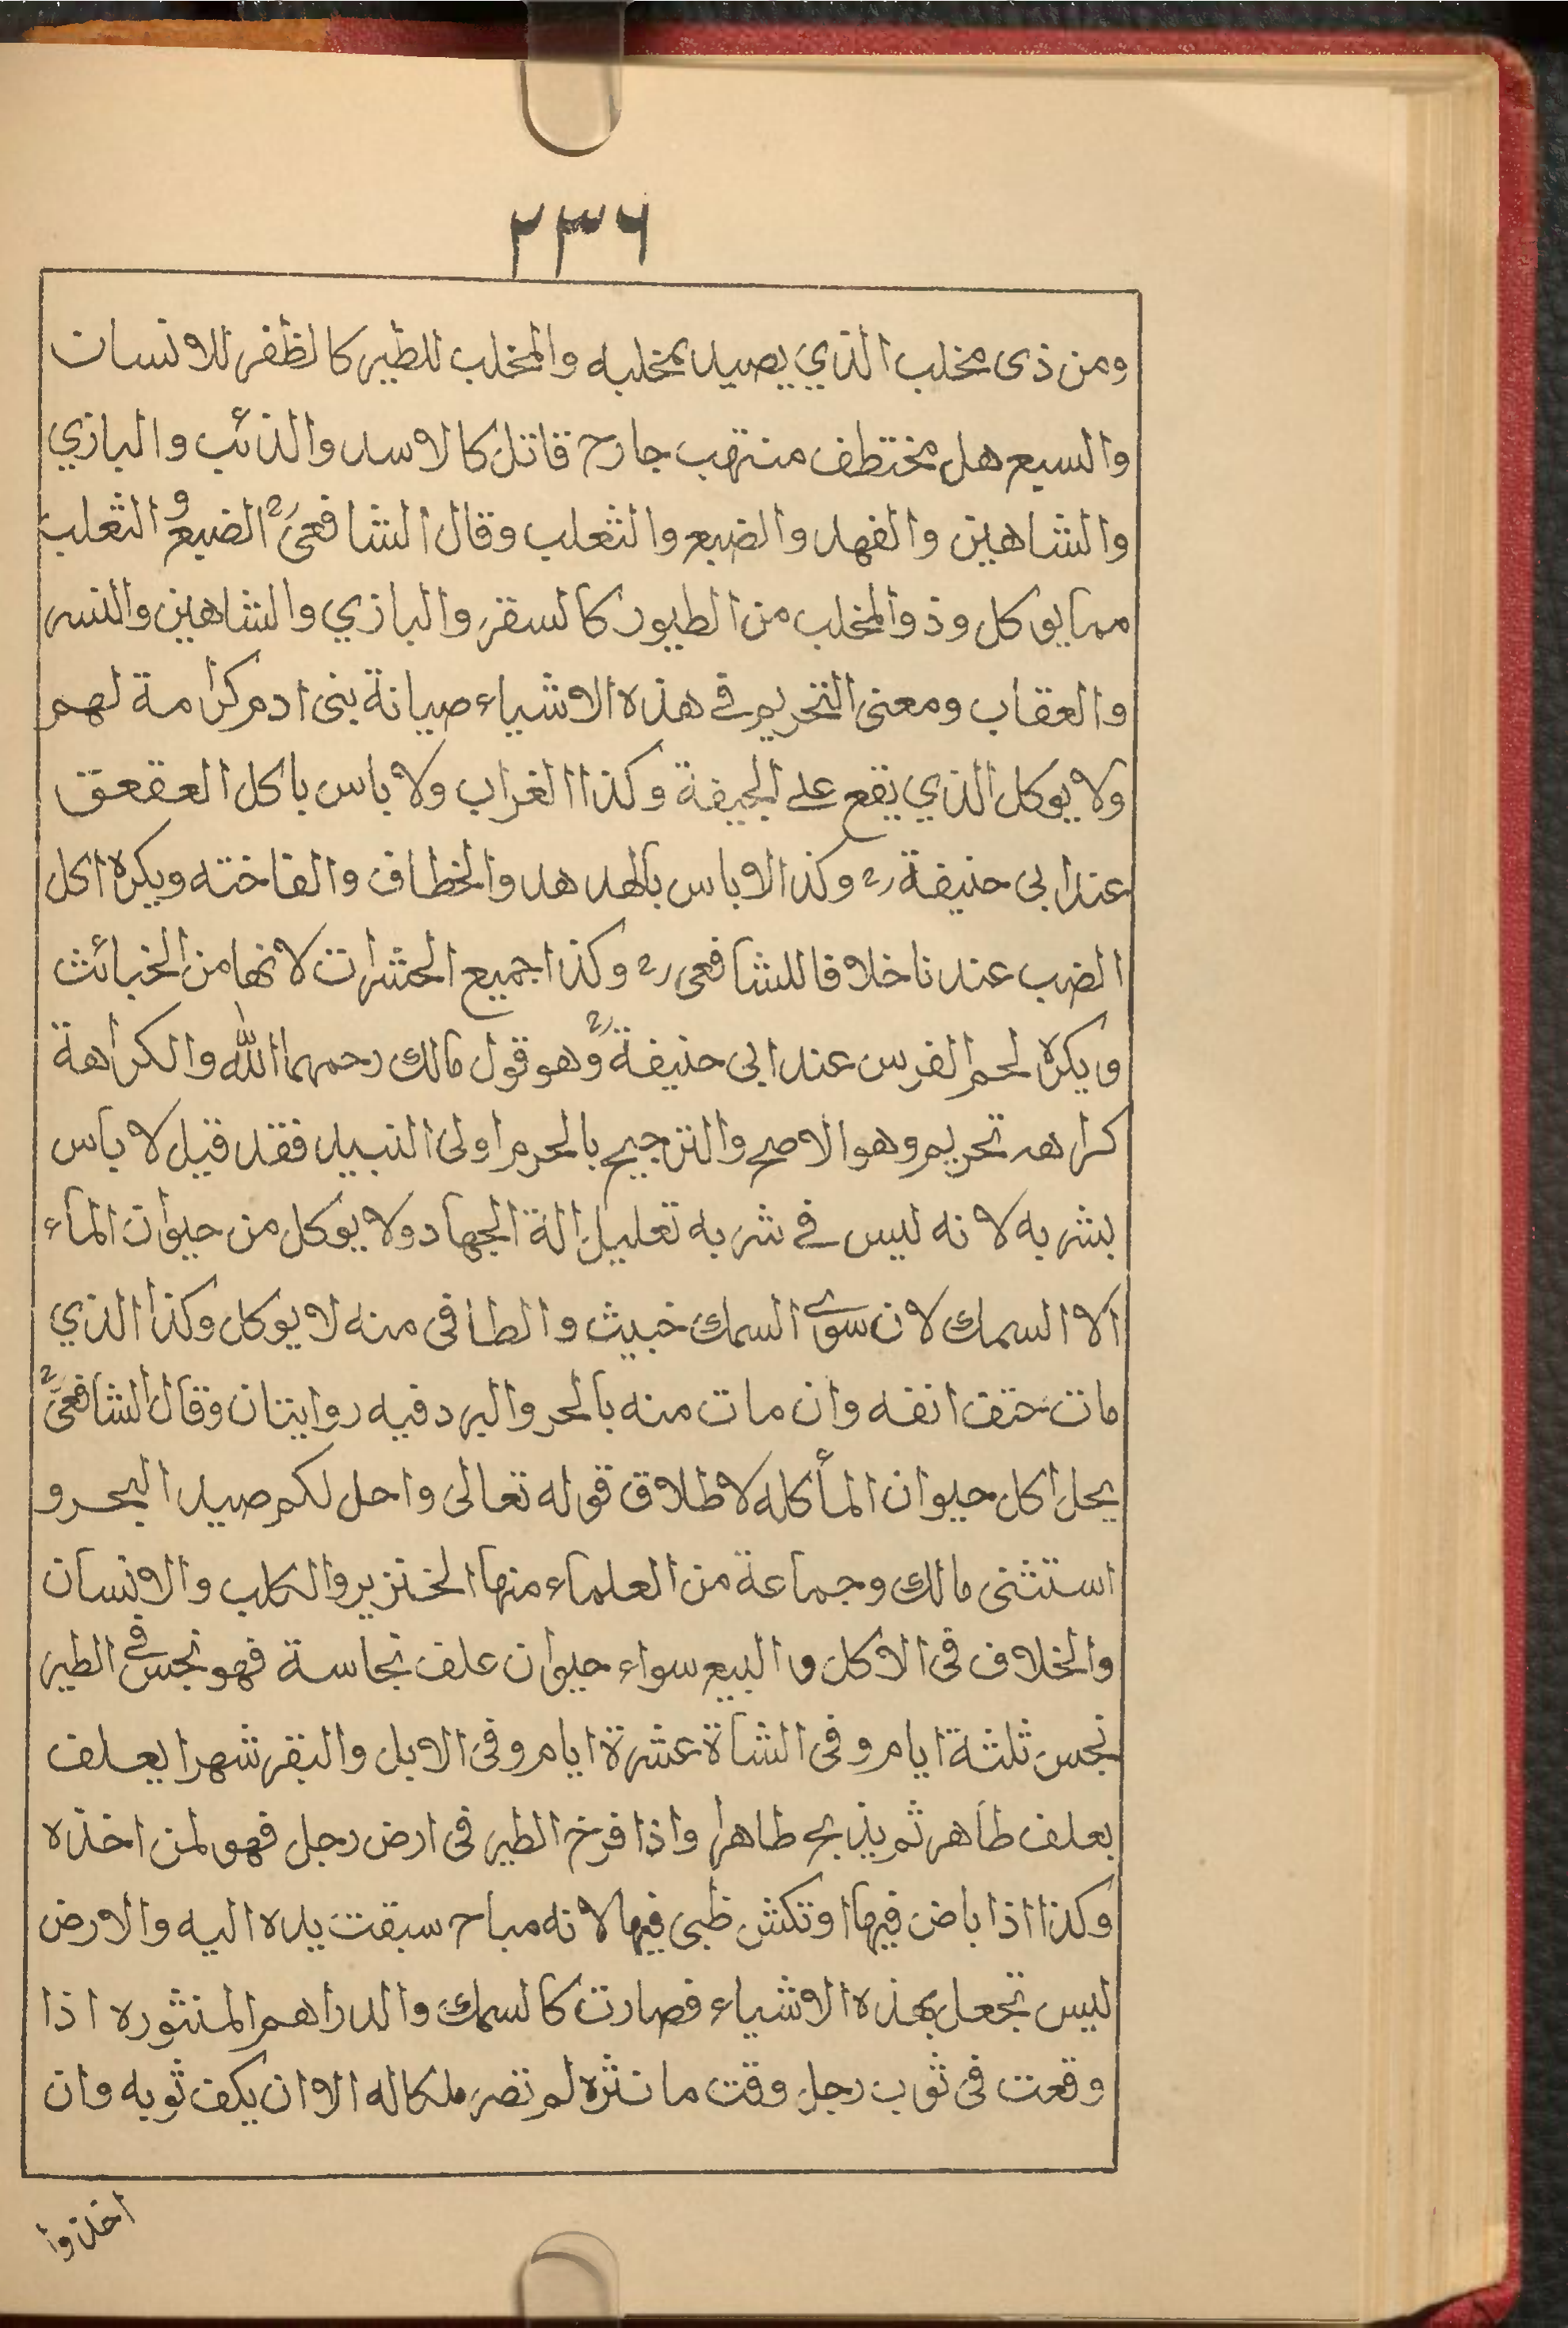 ٢٣٦
ومن ذى مخلب الذي يصيد بمخلبه والمخلب للطير كالظفر للانسان
والسبع هل مختطف منتهب جارح قاتل كالاسد والذئب والبازي
والشاهين والفهد والضبع والثعلب وقال الشافعىؒ الضبع و الثعلب
مما يوكل وذو المخلب من الطيور كالسقر والبازي والشاهين والنسر
والعقاب ومعنى التحريم في هذه الاشياء صيانة بنى ادم كرامة لهم
ولا يوكل الذي يقع على الجيفة وكذا الغراب ولا باس باكل العقعق
عند ابى حنيفة رح وكذا لاباس بالهدهد والخطاف والفاخته ويكره اكل
الضب عندنا خلافا للشافعى رح وكذا جميع الحشرات لانها من الخبائث
ويكره لحم الفرس عند ابى حنيفةؒ وهو قول مالك رحمهما الله والكراهة
كراهه تحريم وهو الاصح والترجيح بالمحرم اولى النبيد فقد قيل لا باس
بشربه لانه ليس في شربه تعليل الة الجهاد ولا يوكل من حيوان الماء
الا السمك لان سوى السمك خبيث والطافى منه لا يوكل وكذا الذي
مات حتف انفه وان مات منه بالحر والبرد فيه روايتان وقال الشافعىؒ
يحل اكل حيوان الماء كله لاطلاق قوله تعالى واحل لكم صيد البحر و
استثنى مالك وجماعة من العلماء منها الخنزير والكلب والانسان
والخلاف فى الاكل والبيع سواء حيوان علف نجاسة فهو نجس في الطير
نجس ثلثة ايام وفى الشاة عشرة ايام وفى الابل والبقر شهرا يعلف
بعلف طاهر ثم يذبح طاهرا واذا فرخ الطير فى ارض رجل فهو لمن اخذه
وكذا اذا باض فيها او تكنس ظبى فيها لانه مباح سبقت يده اليه والارض
ليس تجعل بهذه الاشياء فصارت كالسمك والدراهم المنثوره اذا
وقعت فى ثوب رجل وقت ما نثره لم تصر ملكا له الا ان يكف ثوبه وان
اخذوا